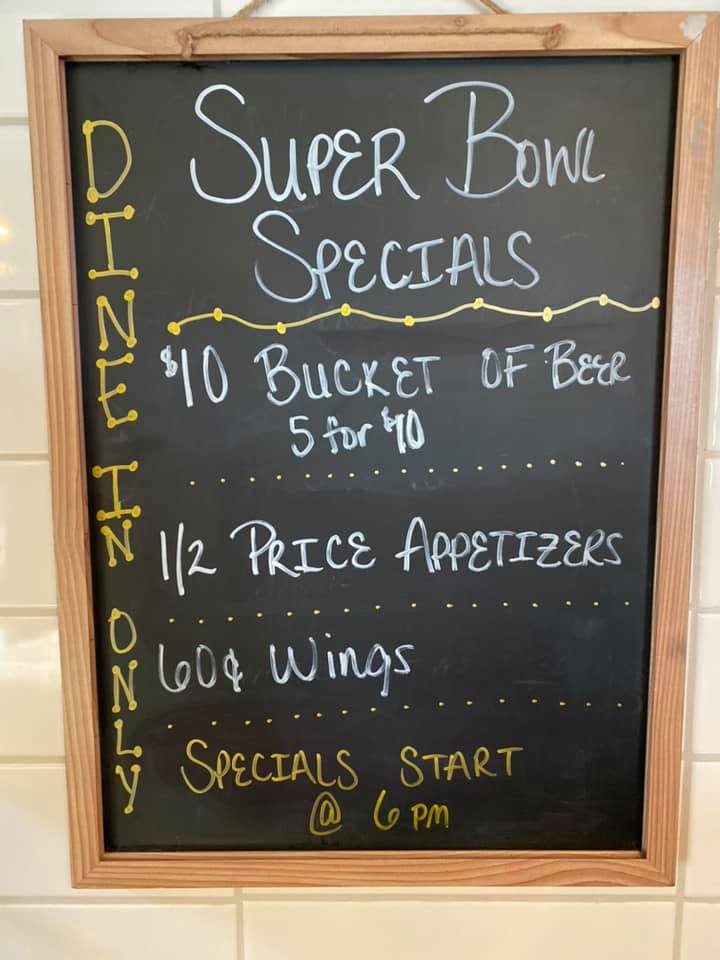 DINE IN ONLY
SUPER BOWL
SPECIALS
$10 BUCKET OF BEER
5 for $10
1/2 PRICE APPETIZERS
60¢ Wings
SPECIALS START
@ 6 PM